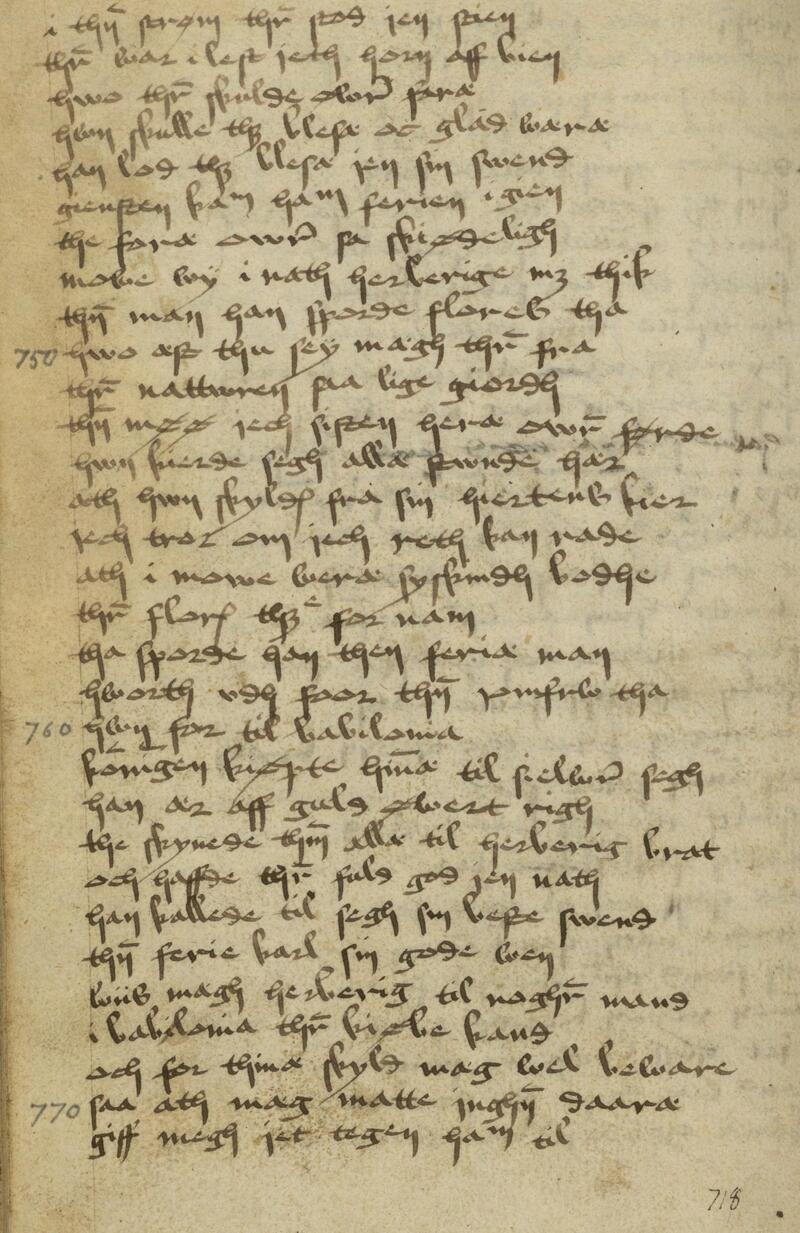 i thn̄ strøm thr̄ stod jen stien
thr̄ war i lest jeth horn aff bien
hwo thr̄ skulde owr̄ faræ
hwn skulle thꝫ blesæ oc glad wæræ
han lod thꝫ blesæ jen sin swend
giensten kam ham ferien igien
the foræ owr̄ sa skiødeligh
mowe wy i nath herberige mꝫ thik
thn̄ man han sporde flores tha
750 hwo æst thu sey magh thr̄ fra
thr̄ nattwren saa lige giordh
thn̄ møø jech sisten heræ owr̄ førde
hwn kierde segh allæ stwnde hær
ath hwn skyldes fra sin hiertens kier
jech tror om jech reth kan rade
ath i mowe weræ syskindh bodhe
thr̄ flores thꝫ for nam
tha sporde han then feriæ man
hworth vdh foor thn̄ jomfrw tha
760 hwn for til babilonia
konī̄gen kiøpte hn̄næ til sielwr̄ segh
han ær aff guld øwert righ
the skynede thm̄ allæ til herberig brat
och haffde thr̄ fuld god jen nath
han kallede til segh sin beste swend
thn̄ ferie karl sin gode wen
wiis magh herberig til noghr̄ mand
i babilonia thr̄ kiøbe kand
och for thinæ skyld mag wel beware
770 saa ath mæg matte jnghn̄ daaræ
giff megh jet tegen ham til
718